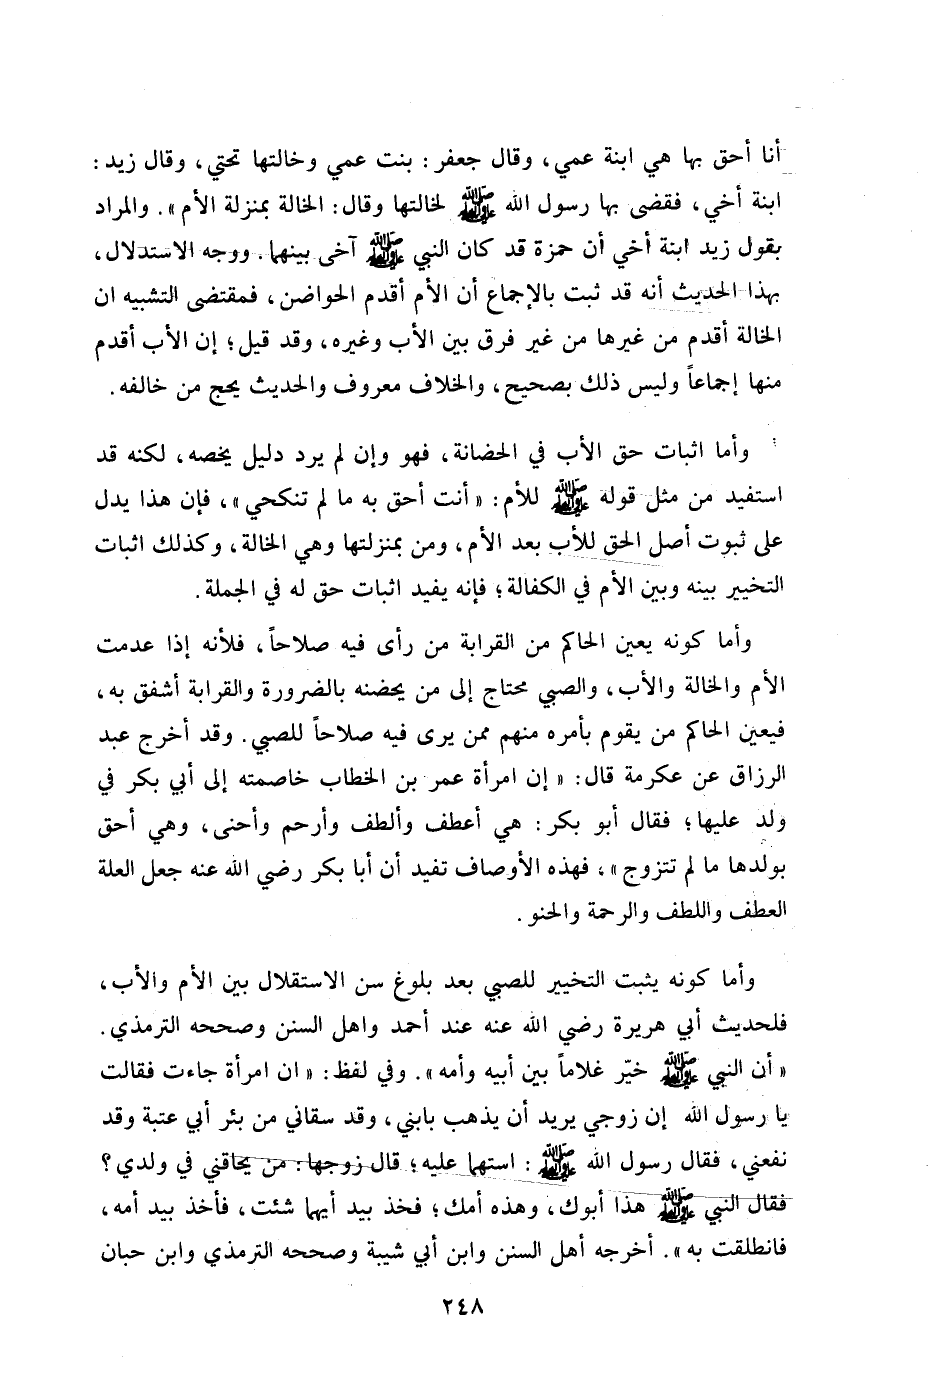 أنا أحق بها هي ابنة عمي، وقال جعفر: بنت عمي وخالتها تحتي، وقال زيد:
ابنة أخي، فقضى بها رسول الله ﷺ لخالتها وقال: الخالة بمنزلة الأم». والمراد
بقول زيد ابنة أخي أن حمزة قد كان النبي ﷺ آخى بينهما. ووجه الاستدلال،
بهذا الحديث أنه قد ثبت بالإجماع أن الأم أقدم الحواضن، فمقتضى التشبيه ان
الخالة أقدم من غيرها من غير فرق بين الأب وغيره، وقد قيل؛ إن الأب أقدم
منها إجماعاً وليس ذلك بصحيح، والخلاف معروف والحديث يحج من خالفه.
وأما اثبات حق الأب في الحضانة، فهو وإن لم يرد دليل يخصه، لكنه قد
استفيد من مثل قوله ﷺ للأم: «أنت أحق به ما لم تنكحي»، فإن هذا يدل
على ثبوت أصل الحق للأب بعد الأم، ومن بمنزلتها وهي الخالة، وكذلك اثبات
التخيير بينه وبين الأم في الكفالة؛ فإنه يفيد اثبات حق له في الجملة.
وأما كونه يعين الحاكم من القرابة من رأى فيه صلاحاً، فلأنه إذا عدمت
الأم والخالة والأب، والصبي محتاج إلى من يحضنه بالضرورة والقرابة أشفق به،
فيعين الحاكم من يقوم بأمره منهم ممن يرى فيه صلاحاً للصبي. وقد أخرج عبد
الرزاق عن عكرمة قال: «إن امرأة عمر بن الخطاب خاصمته إلى أبي بكر في
ولد عليها؛ فقال أبو بكر: هي أعطف وألطف وأرحم وأحنى، وهي أحق
بولدها ما لم تتزوج»، فهذه الأوصاف تفيد أن أبا بكر رضي الله عنه جعل العلة
العطف واللطف والرحمة والحنو.
وأما كونه يثبت التخيير للصبي بعد بلوغ سن الاستقلال بين الأم والأب،
فلحديث أبي هريرة رضي الله عنه عند أحمد واهل السنن وصححه الترمذي.
«أن النبي ﷺ خيّر غلاماً بين أبيه وأمه». وفي لفظ: «ان امرأة جاءت فقالت
يا رسول الله إن زوجي يريد أن يذهب بابني، وقد سقاني من بئر أبي عتبة وقد
نفعني، فقال رسول الله ﷺ: استهما عليه؛ قال زوجها: من يحاقني في ولدي؟
فقال النبي ﷺ هذا أبوك، وهذه أمك؛ فخذ بيد أيهما شئت، فأخذ بيد أمه،
فانطلقت به». أخرجه أهل السنن وابن أبي شيبة وصححه الترمذي وابن حبان
٢٤٨